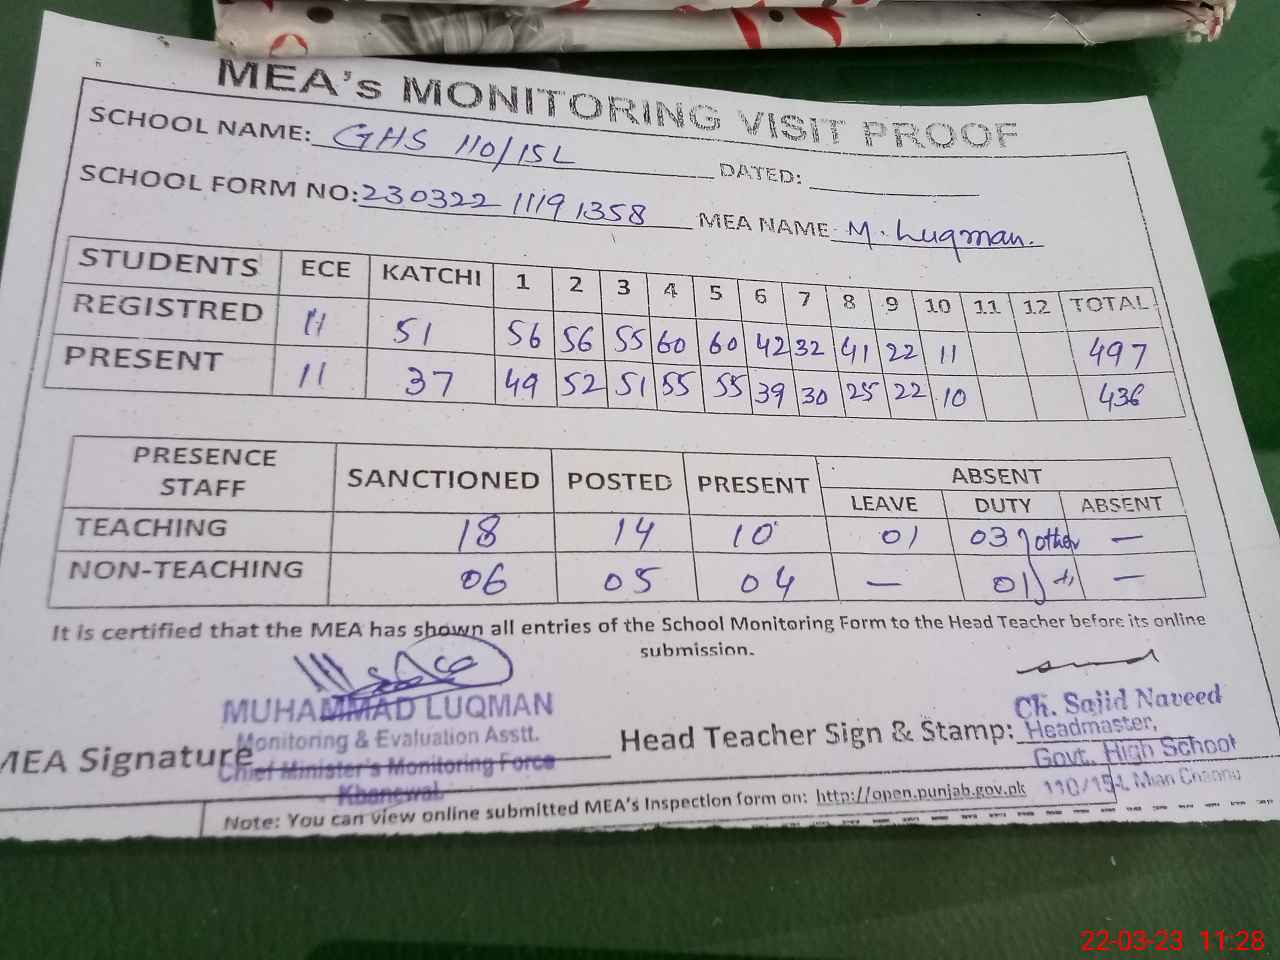 MEA's MONITORING VISIT PROOF
SCHOOL NAME: GHS 110/15L DATED:
SCHOOL FORM NO: 230322 11191358 MEA NAME M. Luqman.
STUDENTS ECE KATCHI 1 2 3 4 5 6 7 8 9 10 11 12 TOTAL
REGISTRED 11 51 56 56 55 60 60 42 32 41 22 11 497
PRESENT 11 37 49 52 51 55 55 39 30 25 22 10 436
PRESENCE STAFF SANCTIONED POSTED PRESENT ABSENT
LEAVE DUTY ABSENT
TEACHING 18 14 10 01 03 other —
NON-TEACHING 06 05 04 — 01 —
It is certified that the MEA has shown all entries of the School Monitoring Form to the Head Teacher before its online
submission.
MUHAMMAD LUQMAN
Monitoring & Evaluation Asstt.
Chief Minister's Monitoring Force
Khanewal
MEA Signature
Head Teacher Sign & Stamp:
Ch. Sajid Naveed
Headmaster,
Govt. High School
110/15-L Mian Channu
Note: You can view online submitted MEA's Inspection form on: http://open.punjab.gov.pk
22-03-23 11:28